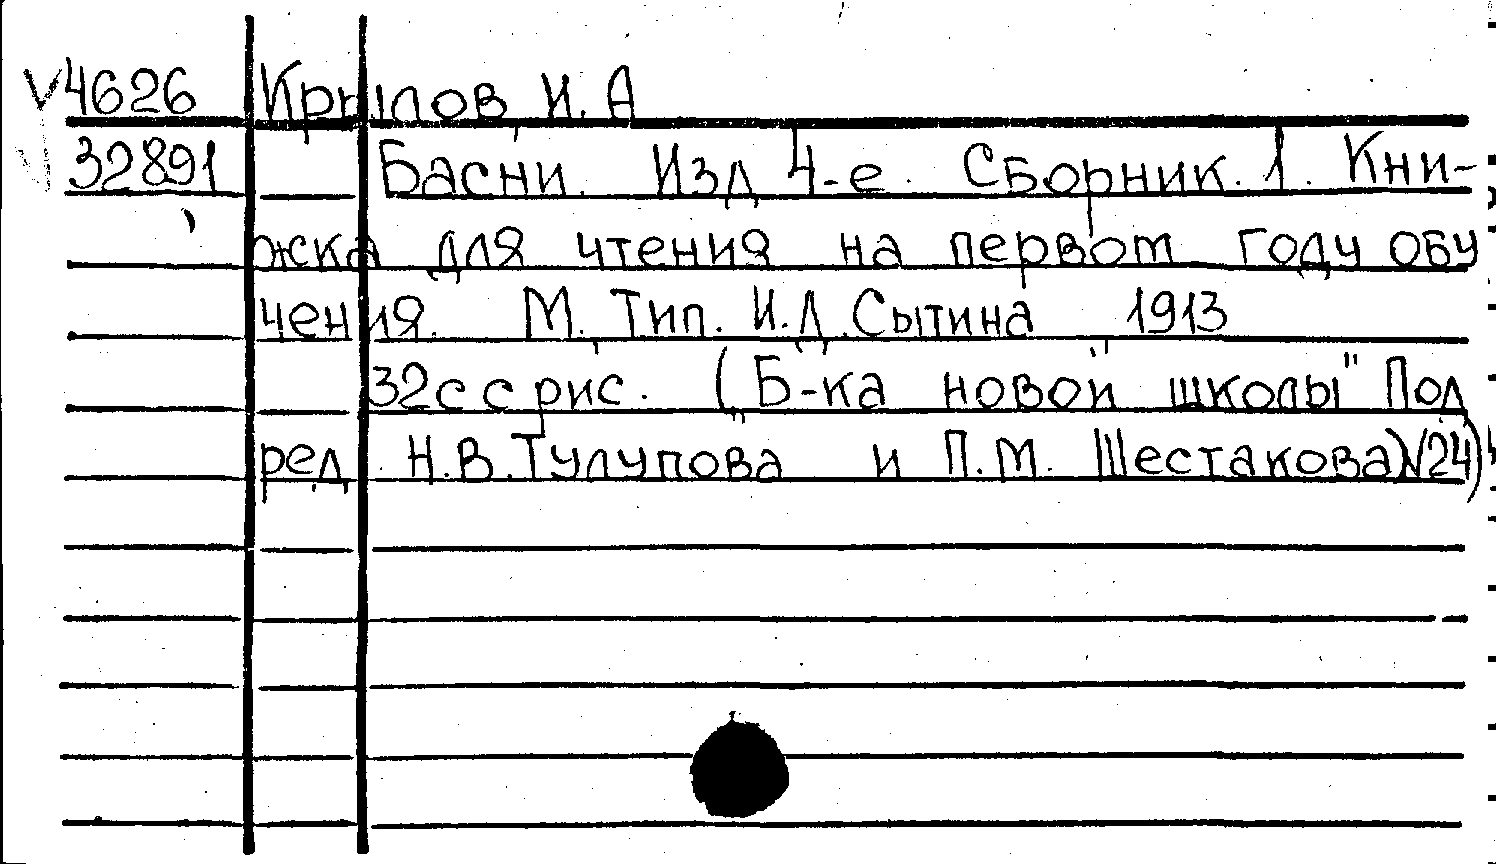 V4626 Крылов И. А
V 32891 Басни. Изд 4-е. Сборник. 1. Кни-
жка для чтения на первом году обу
чения. М. Тип. И.Д.Сытина 1913
32с с рис. (Б-ка „новой школы" Под
ред. Н.В.Тулупова и П.М. Шестакова)№24)